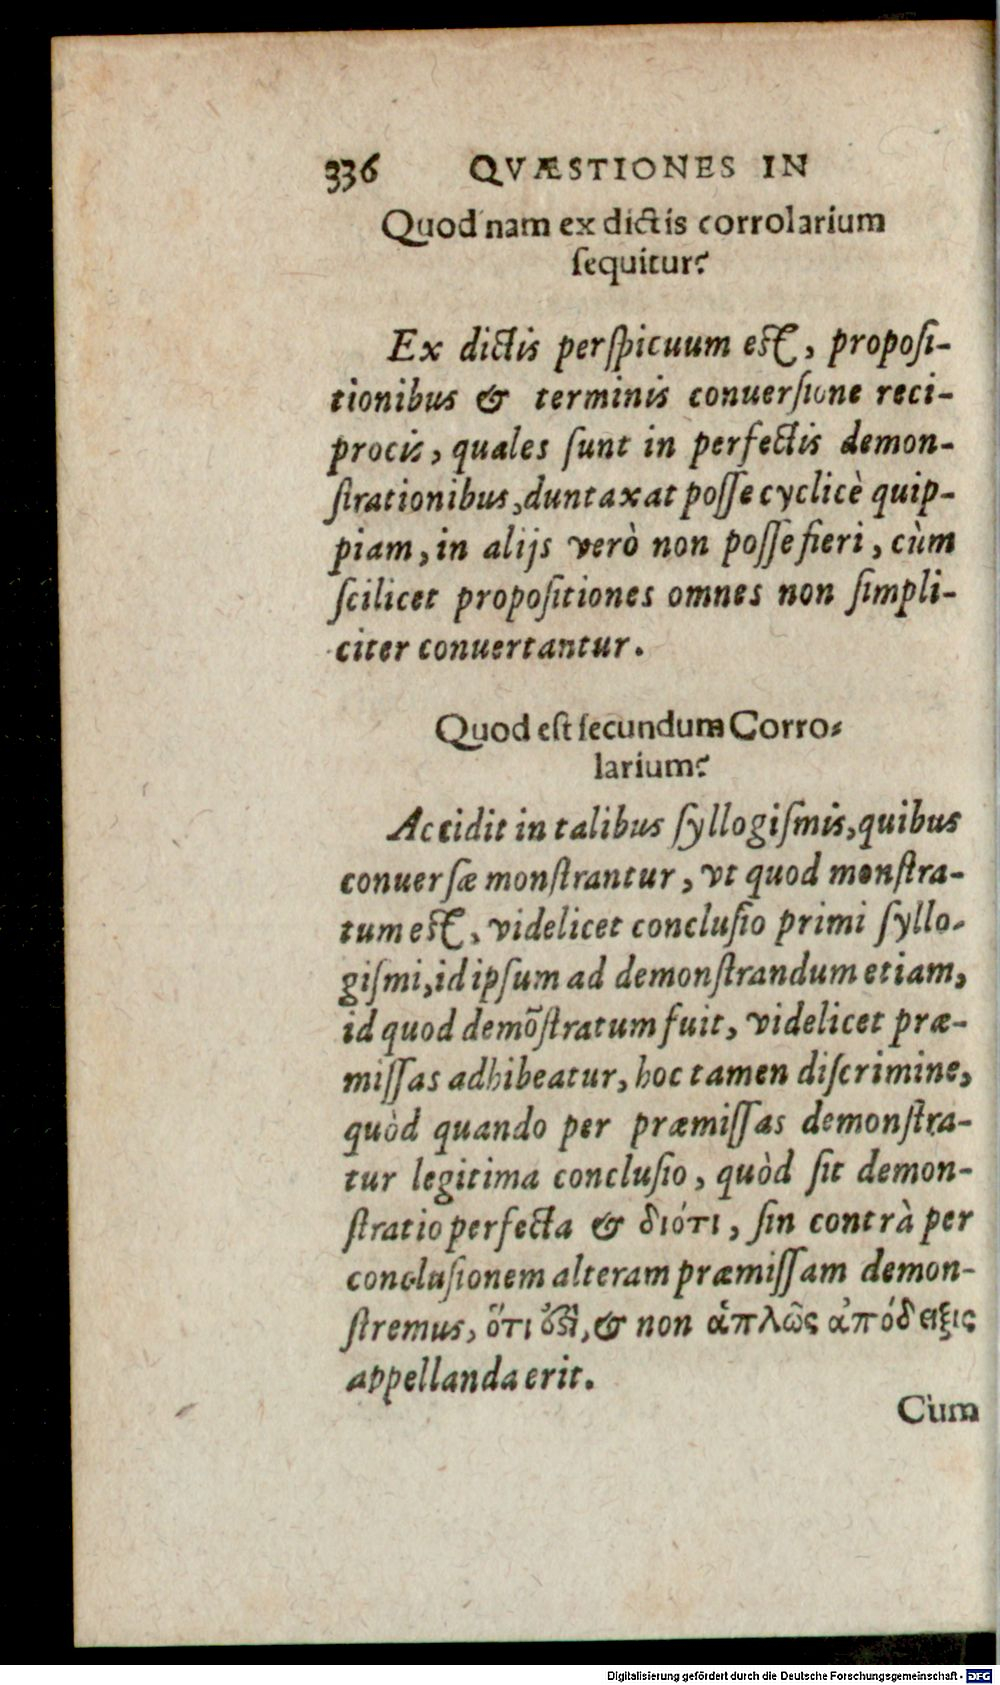 336 QVÆSTIONES IN
Quod nam ex dictis corrolarium
ſequitur?
Ex dictis perſpicuum eſt, propoſi-
tionibus & terminis conuerſione reci-
procis, quales ſunt in perfectis demon-
ſtrationibus, duntaxat poſſe cyclicè quip-
piam, in alijs verò non poſſe fieri, cùm
ſcilicet propoſitiones omnes non ſimpli-
citer conuertantur.
Quod eſt ſecundum Corro-
larium?
Accidit in talibus ſyllogiſmis, quibus
conuerſæ monſtrantur, vt quod monſtra-
tum eſt, videlicet concluſio primi ſyllo-
giſmi, id ipſum ad demonſtrandum etiam,
id quod demõſtratum fuit, videlicet præ-
miſſas adhibeatur, hoc tamen diſcrimine,
quòd quando per præmiſſas demonſtra-
tur legitima concluſio, quòd ſit demon-
ſtratio perfecta & διότι, ſin contrà per
concluſionem alteram præmiſſam demon-
ſtremus, ὅτι ὅτι, & non ἁπλῶς ἀπόδειξις
appellanda erit.
Cum
Digitalisierung gefördert durch die Deutsche Forschungsgemeinschaft - DFG